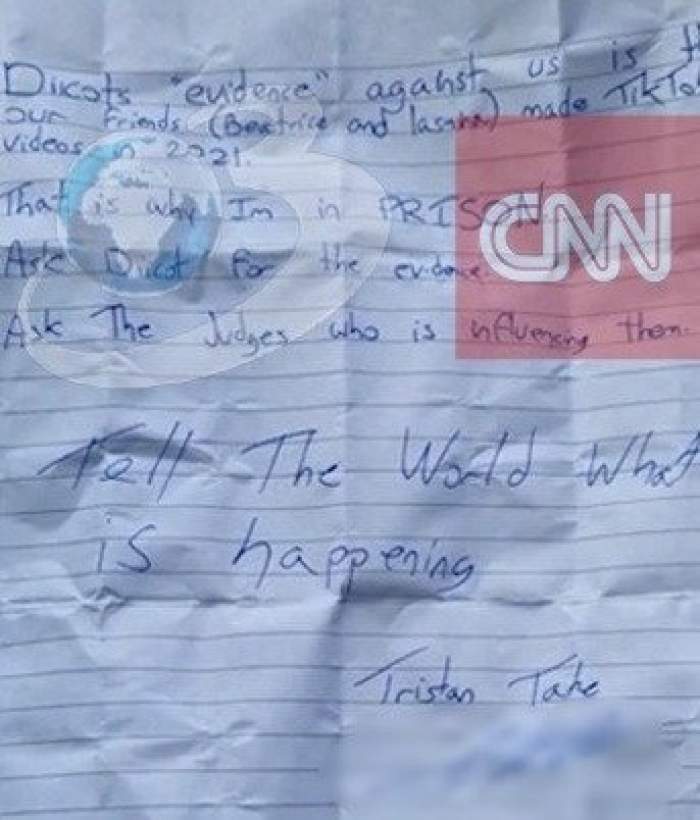 Diicots "evidence" against us is th
our friends (Beatrice and Iasmina) made TikTo
videos in 2021.
That is why Im in PRISON.
Ask Diicot for the evidence.
Ask The Judges who is influencing them.
Tell The World What
is happening
Tristan Tate
CNN